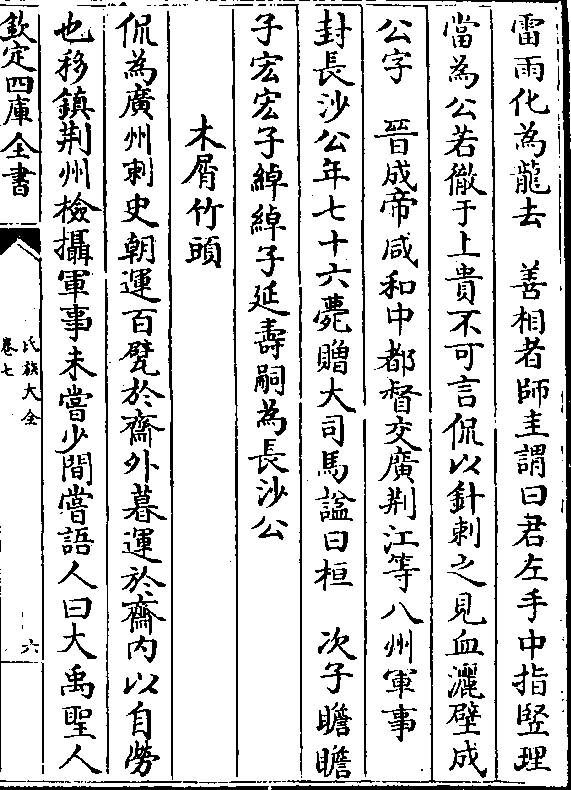 雷雨化為龍去　善相者師圭謂曰君左手中指竪理
當為公若徹于上貴不可言侃以針刺之見血灑壁成
公字　晉成帝咸和中都督交廣荆江等八州軍事
封長沙公年七十六薨贈大司馬諡曰桓　次子瞻瞻
子宏宏子綽綽子延壽嗣為長沙公
木屑竹頭
侃為廣州刺史朝運百甓於齋外暮運於齋内以自勞
也移鎮荆州檢攝軍事未嘗少間嘗語人曰大禹聖人
欽定四庫全書
氏族大全
卷七
六